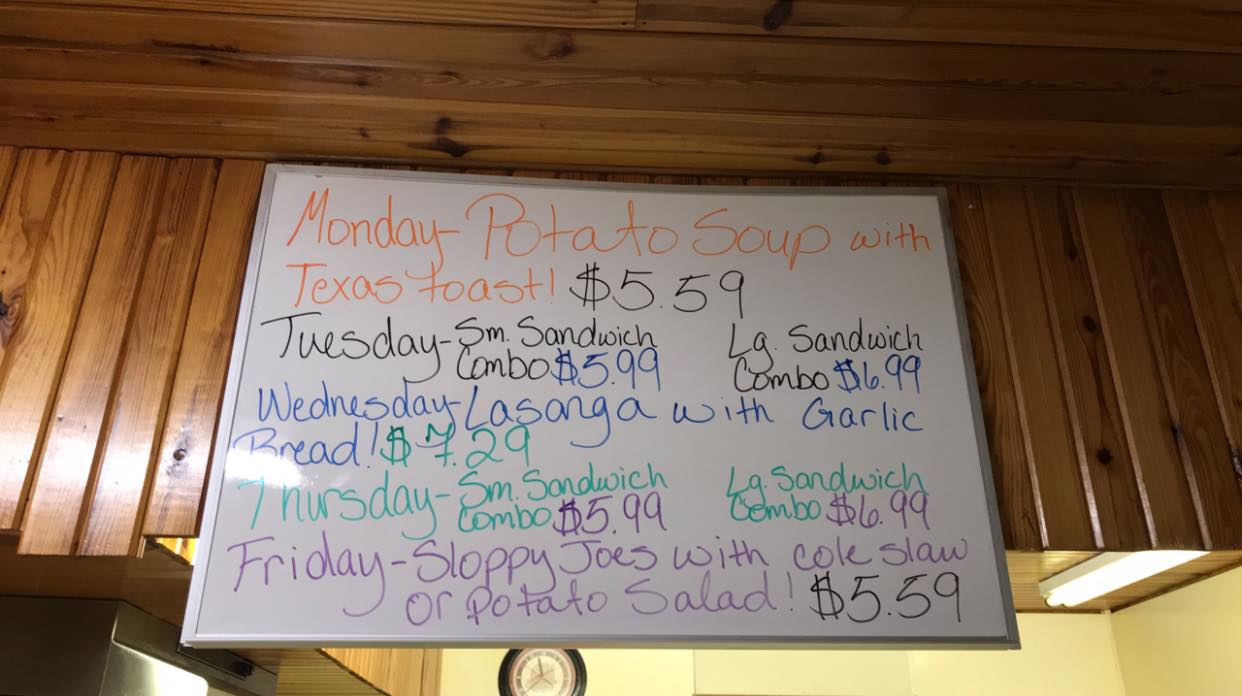 Monday- Potato Soup with
Texas toast! $5.59
Tuesday- Sm. Sandwich Lg. Sandwich
Combo $5.99 Combo $6.99
Wednesday- Lasanga with Garlic
Bread! $7.29
Thursday- Sm. Sandwich Lg. Sandwich
Combo $5.99 Combo $6.99
Friday- Sloppy Joes with cole slaw
or potato Salad! $5.59